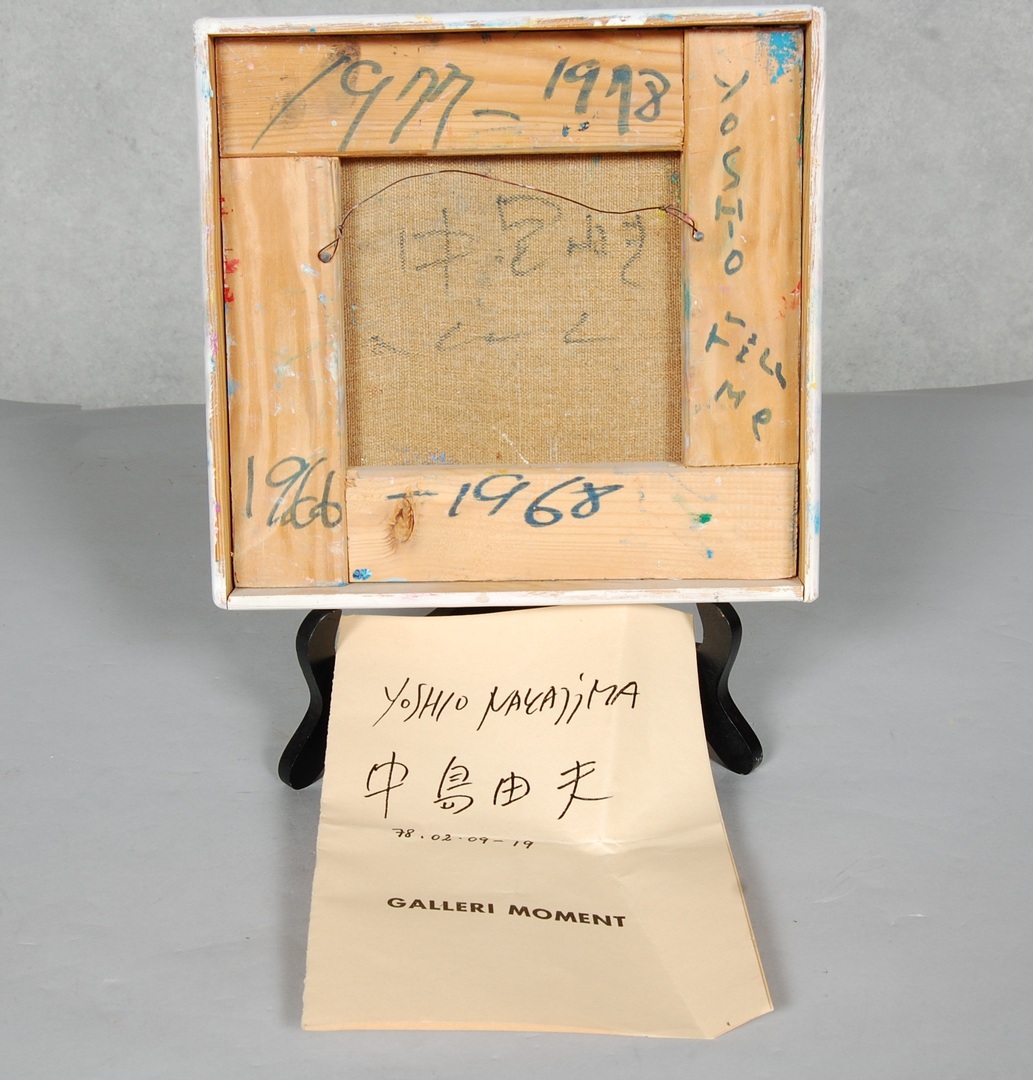 1977-1978
YOSHIO
1966-1968
YOSHIO NAKAJiMA
中島由夫
78.02.09-19
GALLERI MOMENT